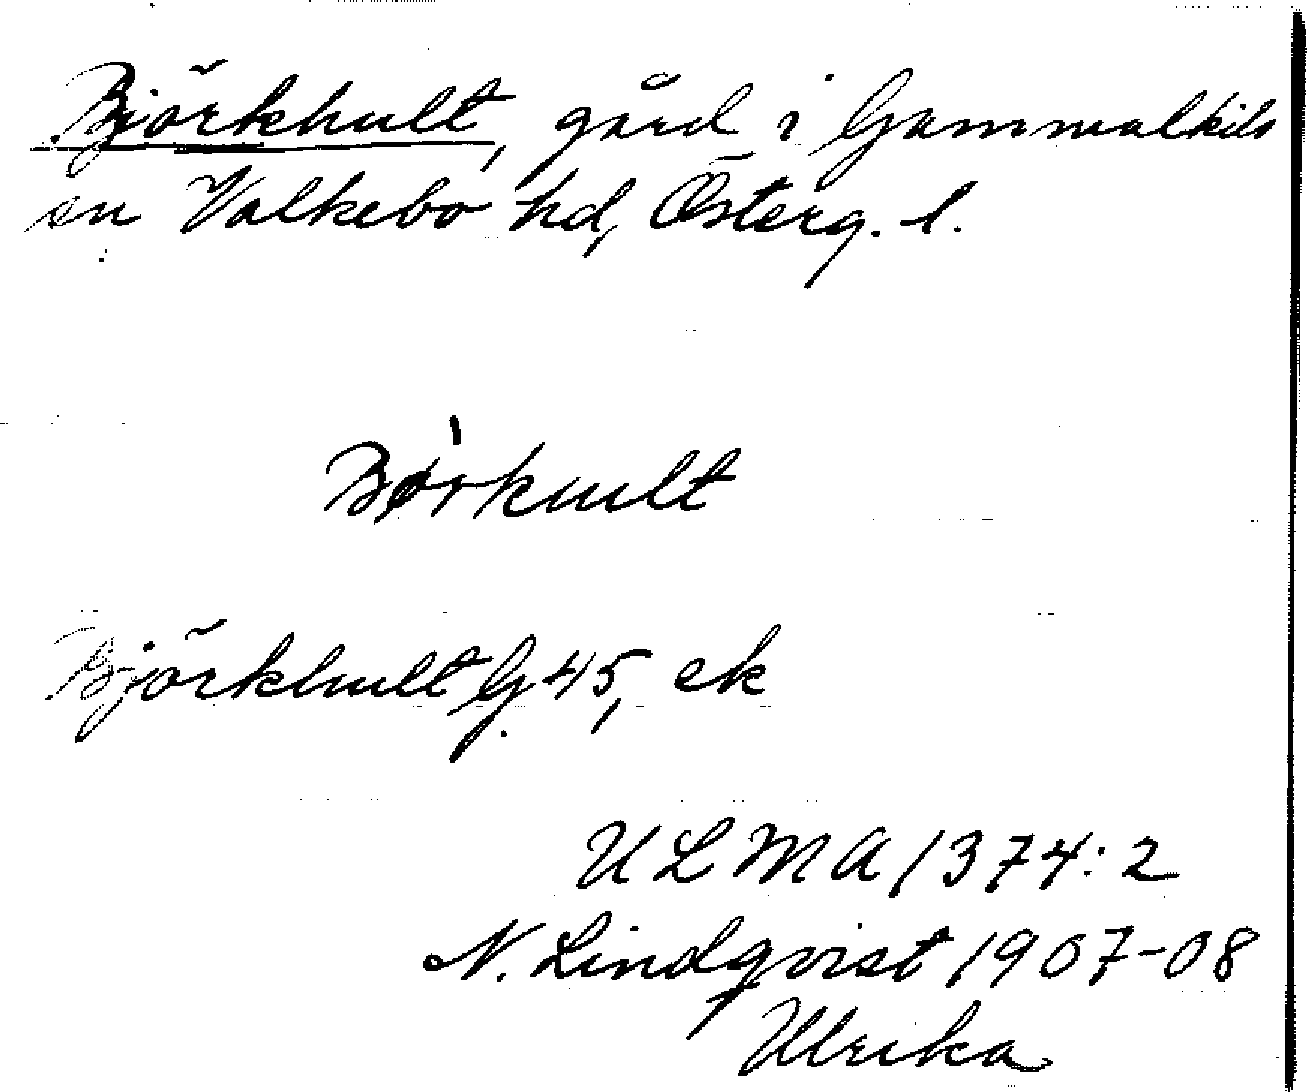 Björkhult, gård i Gammalkils
sn Valkebo hd, Österg. l.
Bø̀rkult
Björkhult G. 45, ek
ULMA 1374:2
N. Lindqvist 1907-08
Ulrika